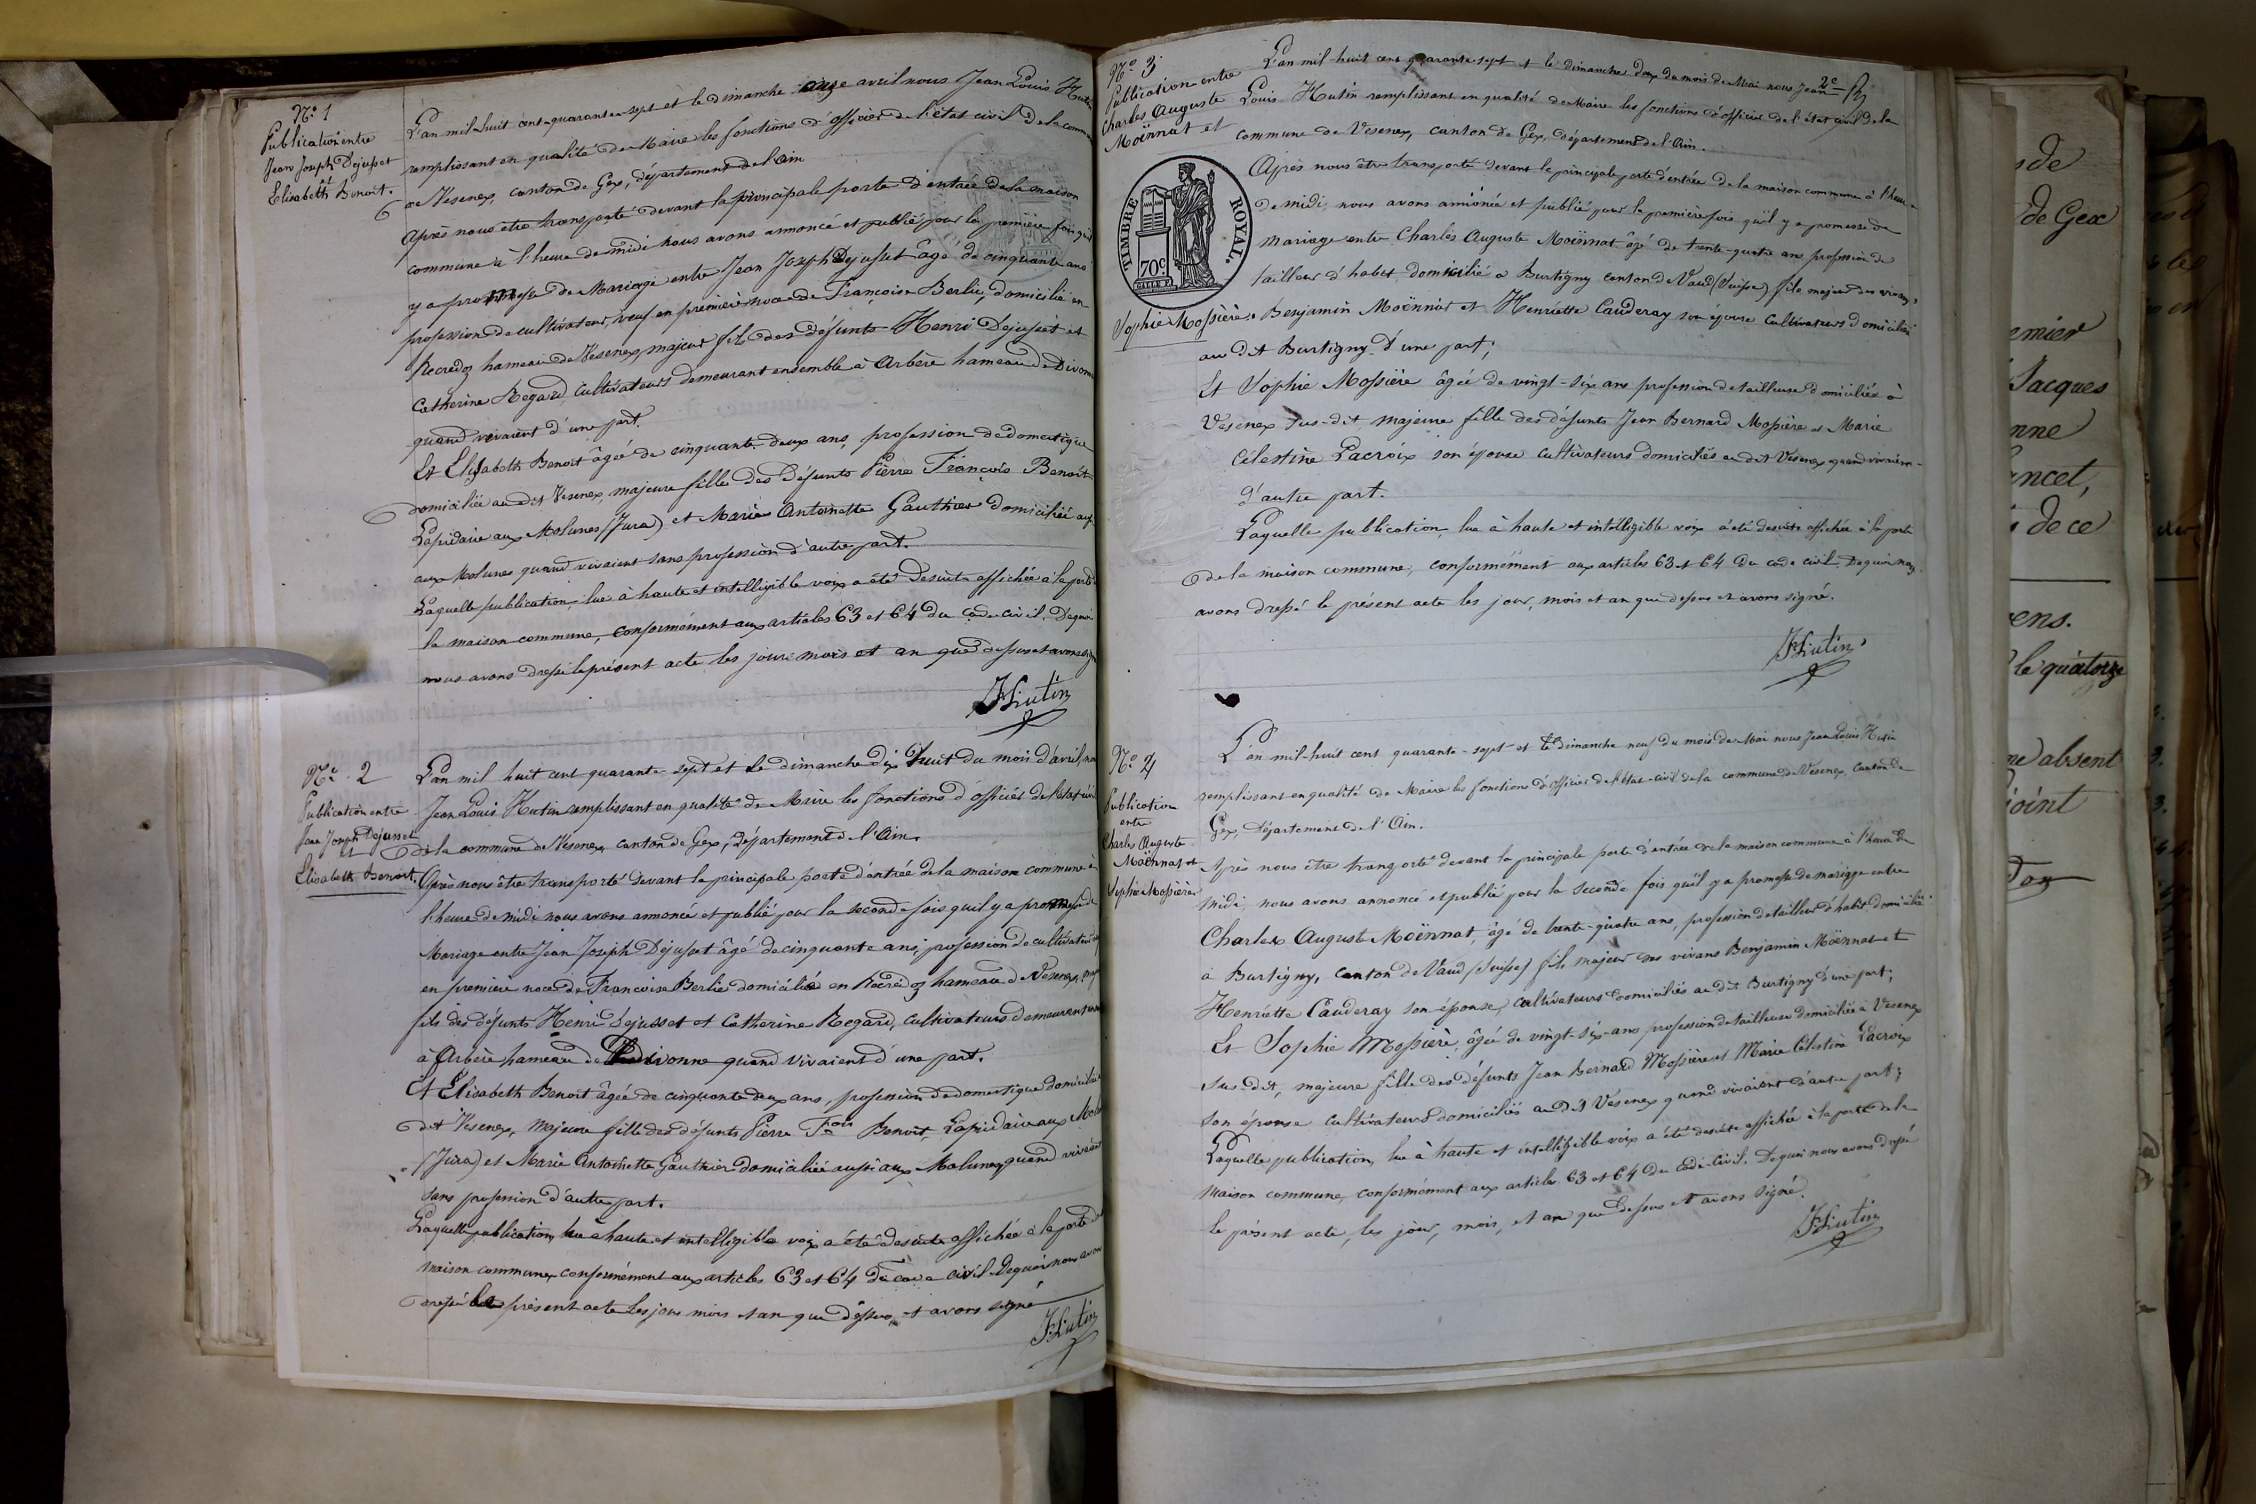 N.° 1
Publication entre
Jean Joseph Dejusset
Elisabeth Benoit.
L'an mil-huit cent-quarante-sept et le dimanche onze avril nous Jean Louis Hutin
remplissant en qualité de Maire les fonctions d'officier de l'état civil de la commune
de Vesenex, canton de Gex, département de l'ain
Après nous être transporté devant la principale porte d'entrée de la maison
commune à l'heure de midi nous avons annoncé et publié pour la première fois qu'il
y a promesse de Mariage entre Jean Joseph Dejusset âgé de cinquante ans
profession de cultivateur, veuf en première noce de Françoise Berlie, domicilié en
Recredoz hameau de Vesenex, majeur fils des défunts Henri Dejusset et
Catherine Regard, cultivateurs demeurant ensemble à Arbère hameau de Divonne
quand vivaient d'une part.
Et Elisabeth Benoit âgée de cinquante deux ans, profession de domestique
domiciliée au dit Vesenex, majeure fille des défunts Pierre François Benoit
Lapidaire aux Molunes (Jura) et Marie Antoinette Gauthier domiciliée aussi
aux Molunes quand vivaient sans profession d'autre part.
Laquelle publication, lue à haute et intelligible voix a été desuite affichée à la porte de
la maison commune, conformément aux articles 63 et 64 du code civil. De quoi
nous avons dressé le présent acte les jour mois et an que dessus et avons signé
JHutin
N.° 2
Publication entre
Jean Joseph Dejusset
et
Elisabeth Benoit.
L'an mil huit cent quarante-sept et le dimanche dix huit du mois d'avril, nous
Jean Louis Hutin remplissant en qualité de Maire les fonctions d'officier de l'état civil
de la commune de Vesenex canton de Gex, département de l'Ain.
Après nous être transporté devant la principale porte d'entrée de la maison commune à
l'heure de midi nous avons annoncé et publié pour la seconde fois qu'il y a promesse de
Mariage entre Jean Joseph Dejusset âgé de cinquante ans, profession de cultivateur
en première noce de Francoise Berlie domicilié en Recredoz hameau de Vesenex,
fils des défunts Henri Dejusset et Catherine Regard, cultivateurs demeurant
à Arbère hameau de Divonne quand vivaient d'une part.
Et Elisabeth Benoit âgée de cinquante deux ans, profession de domestique domiciliée
dit Vesenex, majeure fille des défunts Pierre Fçois Benoit, Lapidaire aux
(Jura) et Marie Antoinette Gauthier domiciliée aussi aux Molunes quand vivaient
sans profession d'autre part.
Laquelle publication, lue à haute et intelligible voix a été desuite affichée à la porte de
maison commune, conformément aux articles 63 et 64 du code civil. De quoi nous avons
dressé le présent acte les jour mois et an que dessus, et avons signé
JHutin
2e
N.° 3
Publication entre
Charles Auguste
Moënnat et
Sophie Mossière.
L'an mil-huit cent quarante-sept et le dimanche deux du mois de Mai nous Jean
Louis Hutin remplissant en qualité de Maire les fonctions d'officier de l'état civil de la
commune de Vesenex, canton de Gex, département de l'Ain.
TIMBRE ROYAL.
70c.
Après nous être transporté devant la principale porte d'entrée de la maison commune à l'heure
de midi, nous avons annoncé et publié pour la première fois qu'il y a promesse de
mariage entre Charles Auguste Moënnat âgé de trente-quatre ans profession de
tailleur d'habit domicilié a Burtigny canton de Vaud (Suisse) fils majeur des vivans
Benjamin Moënnat et Henriette Cauderay son épouse cultivateurs domiciliés
au dit Burtigny d'une part;
Et Sophie Mossière âgée de vingt-six ans profession de tailleuse domiciliée à
Vesenex sus-dit majeure fille des défunts Jean Bernard Mossière et Marie
Célestine Lacroix son épouse cultivateurs domiciliés au dit Vesenex quand vivaient
d'autre part.
Laquelle publication, lue à haute et intelligible voix a été desuite affichée à la porte
de la maison commune, conformément aux articles 63 et 64 du code civil. De quoi nous
avons dressé le présent acte les jour, mois et an que dessus et avons signé.
JHutin
N.° 4
Publication
entre
Charles Auguste
Moënnat et
Sophie Mossière
L'an mil-huit cent quarante-sept et le dimanche neuf du mois de Mai nous Jean Louis Hutin
remplissant en qualité de Maire les fonctions d'officier de l'état-civil de la commune de Vesenex, canton de
Gex, département de l'Ain.
Après nous être transporté devant la principale porte d'entrée de la maison commune à l'heure de
midi, nous avons annoncé et publié pour la seconde fois qu'il y a promesse de mariage entre
Charles Auguste Moënnat, âgé de trente-quatre ans, profession de tailleur d'habit domicilié
à Burtigny, canton de Vaud (Suisse) fils majeur des vivans Benjamin Moënnat et
Henriette Cauderay son épouse, cultivateurs domiciliés au dit Burtigny d'une part;
Et Sophie Mossière, âgée de vingt-six-ans profession de tailleuse domiciliée à Vesenex
sus-dit, majeure fille des défunts Jean Bernard Mossière et Marie Célestine Lacroix
son épouse cultivateurs domiciliés au dit Vesenex quand vivaient d'autre part;
Laquelle publication, lue à haute et intelligible voix a été desuite affichée à la porte de la
maison commune, conformément aux articles 63 et 64 du code civil. De quoi nous avons dressé
le présent acte, les jour, mois, et an que dessus et avons signé.
JHutin
de
de Gex
Jacques
de ce
le quatorze
absent